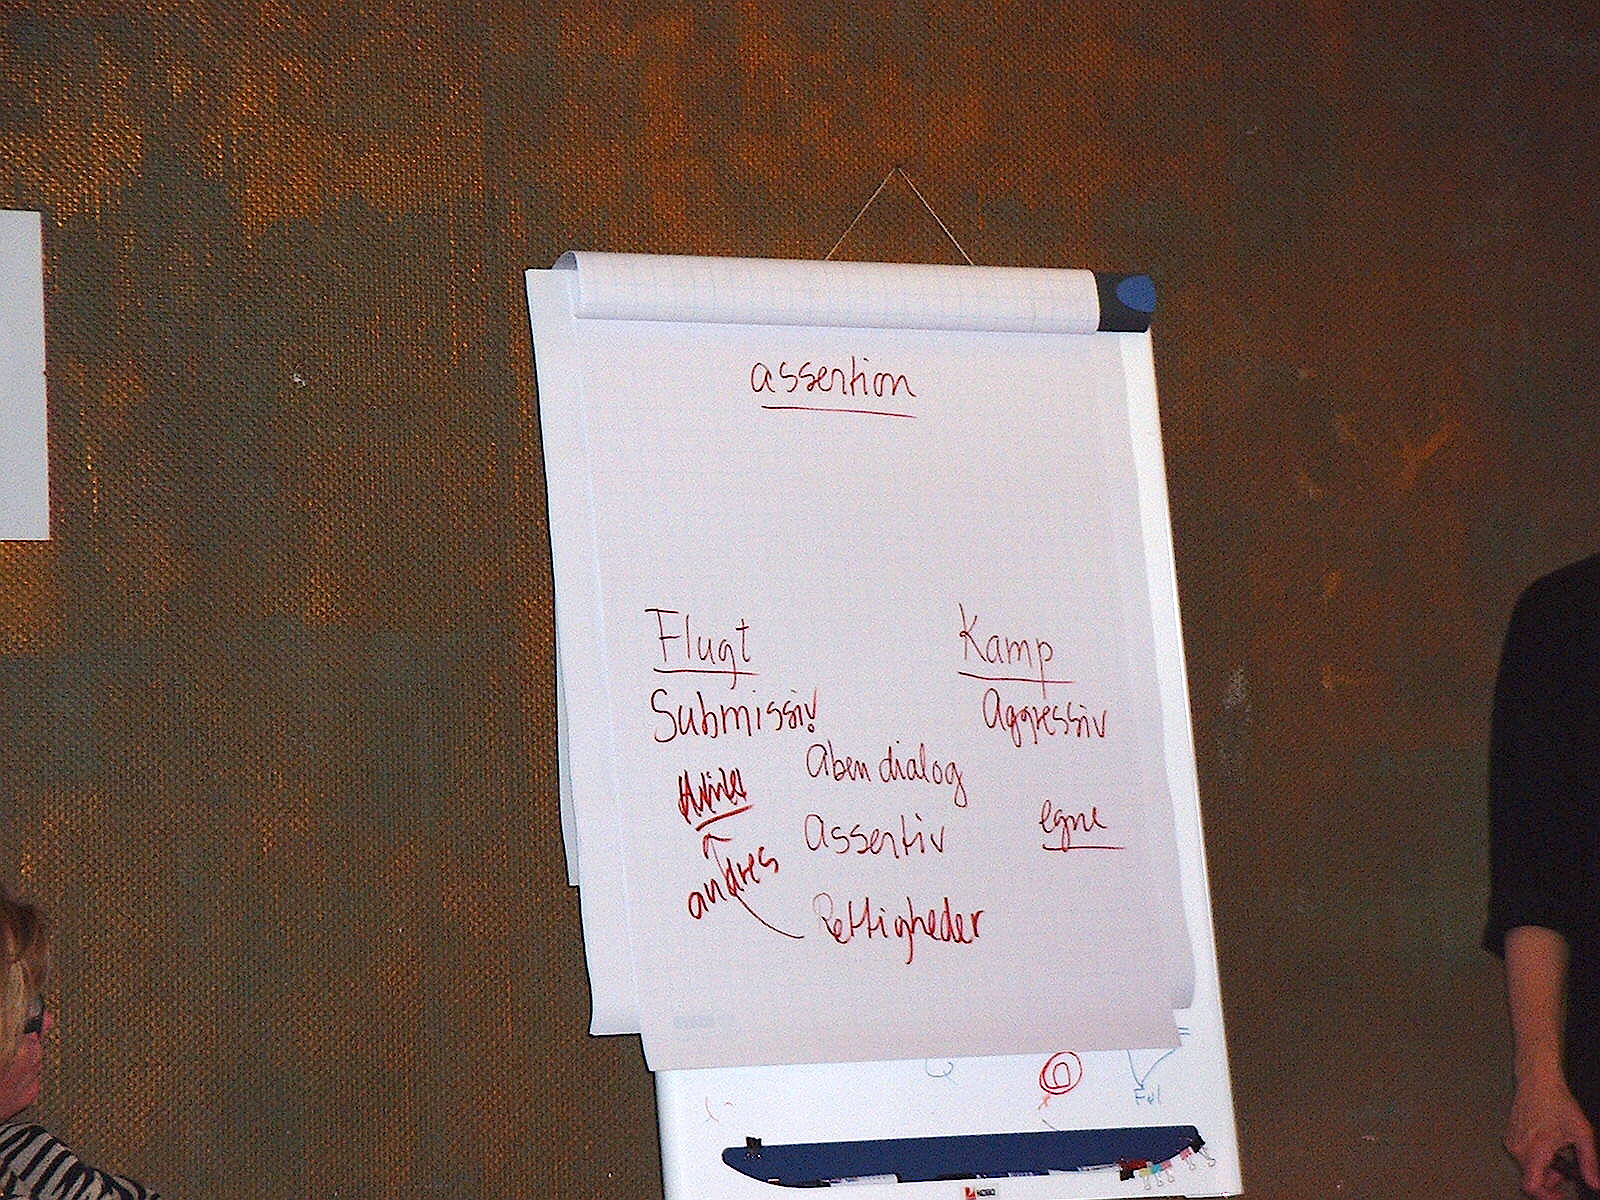 assertion
Flugt
Kamp
Submissiv
Aggressiv
åben dialog
Assertiv
egne
andres
Rettigheder
Føl
NOBO